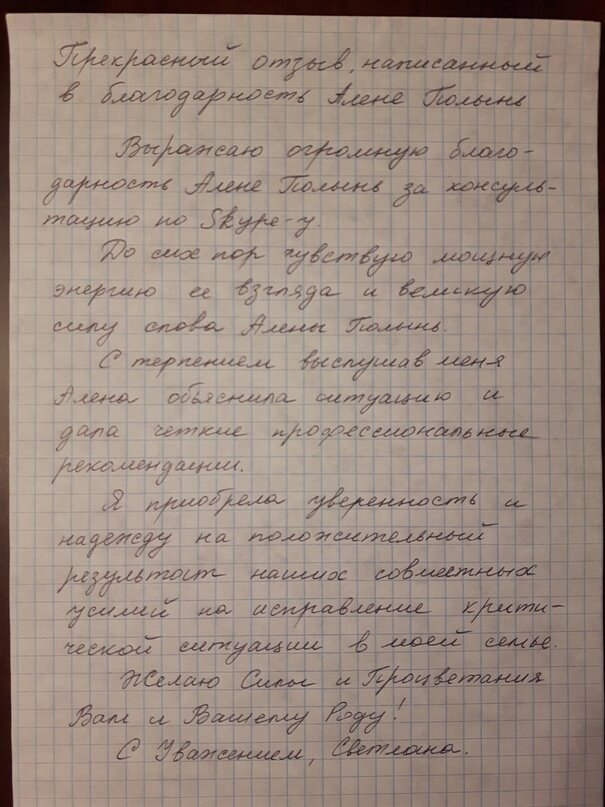 Прекрасный отзыв, написанный
в благодарность Алене Полынь
Выражаю огромную благо-
дарность Алене Полынь за консуль-
тацию по Skype-у.
До сих пор чувствую мощную
энергию ее взгляда и великую
силу слова Алены Полынь.
С терпением выслушав меня
Алена объяснила ситуацию и
дала четкие профессиональные
рекомендации.
Я приобрела уверенность и
надежду на положительный
результат наших совместных
усилий на исправление крити-
ческой ситуации в моей семье.
Желаю Силы и Процветания
Вам и Вашему Роду!
С Уважением, Светлана.